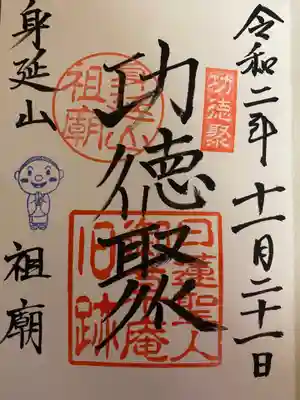 令和二年十一月二十一日
功徳聚
功徳聚
身延山
祖廟
身延山
祖廟
日蓮聖人
御草庵
旧跡